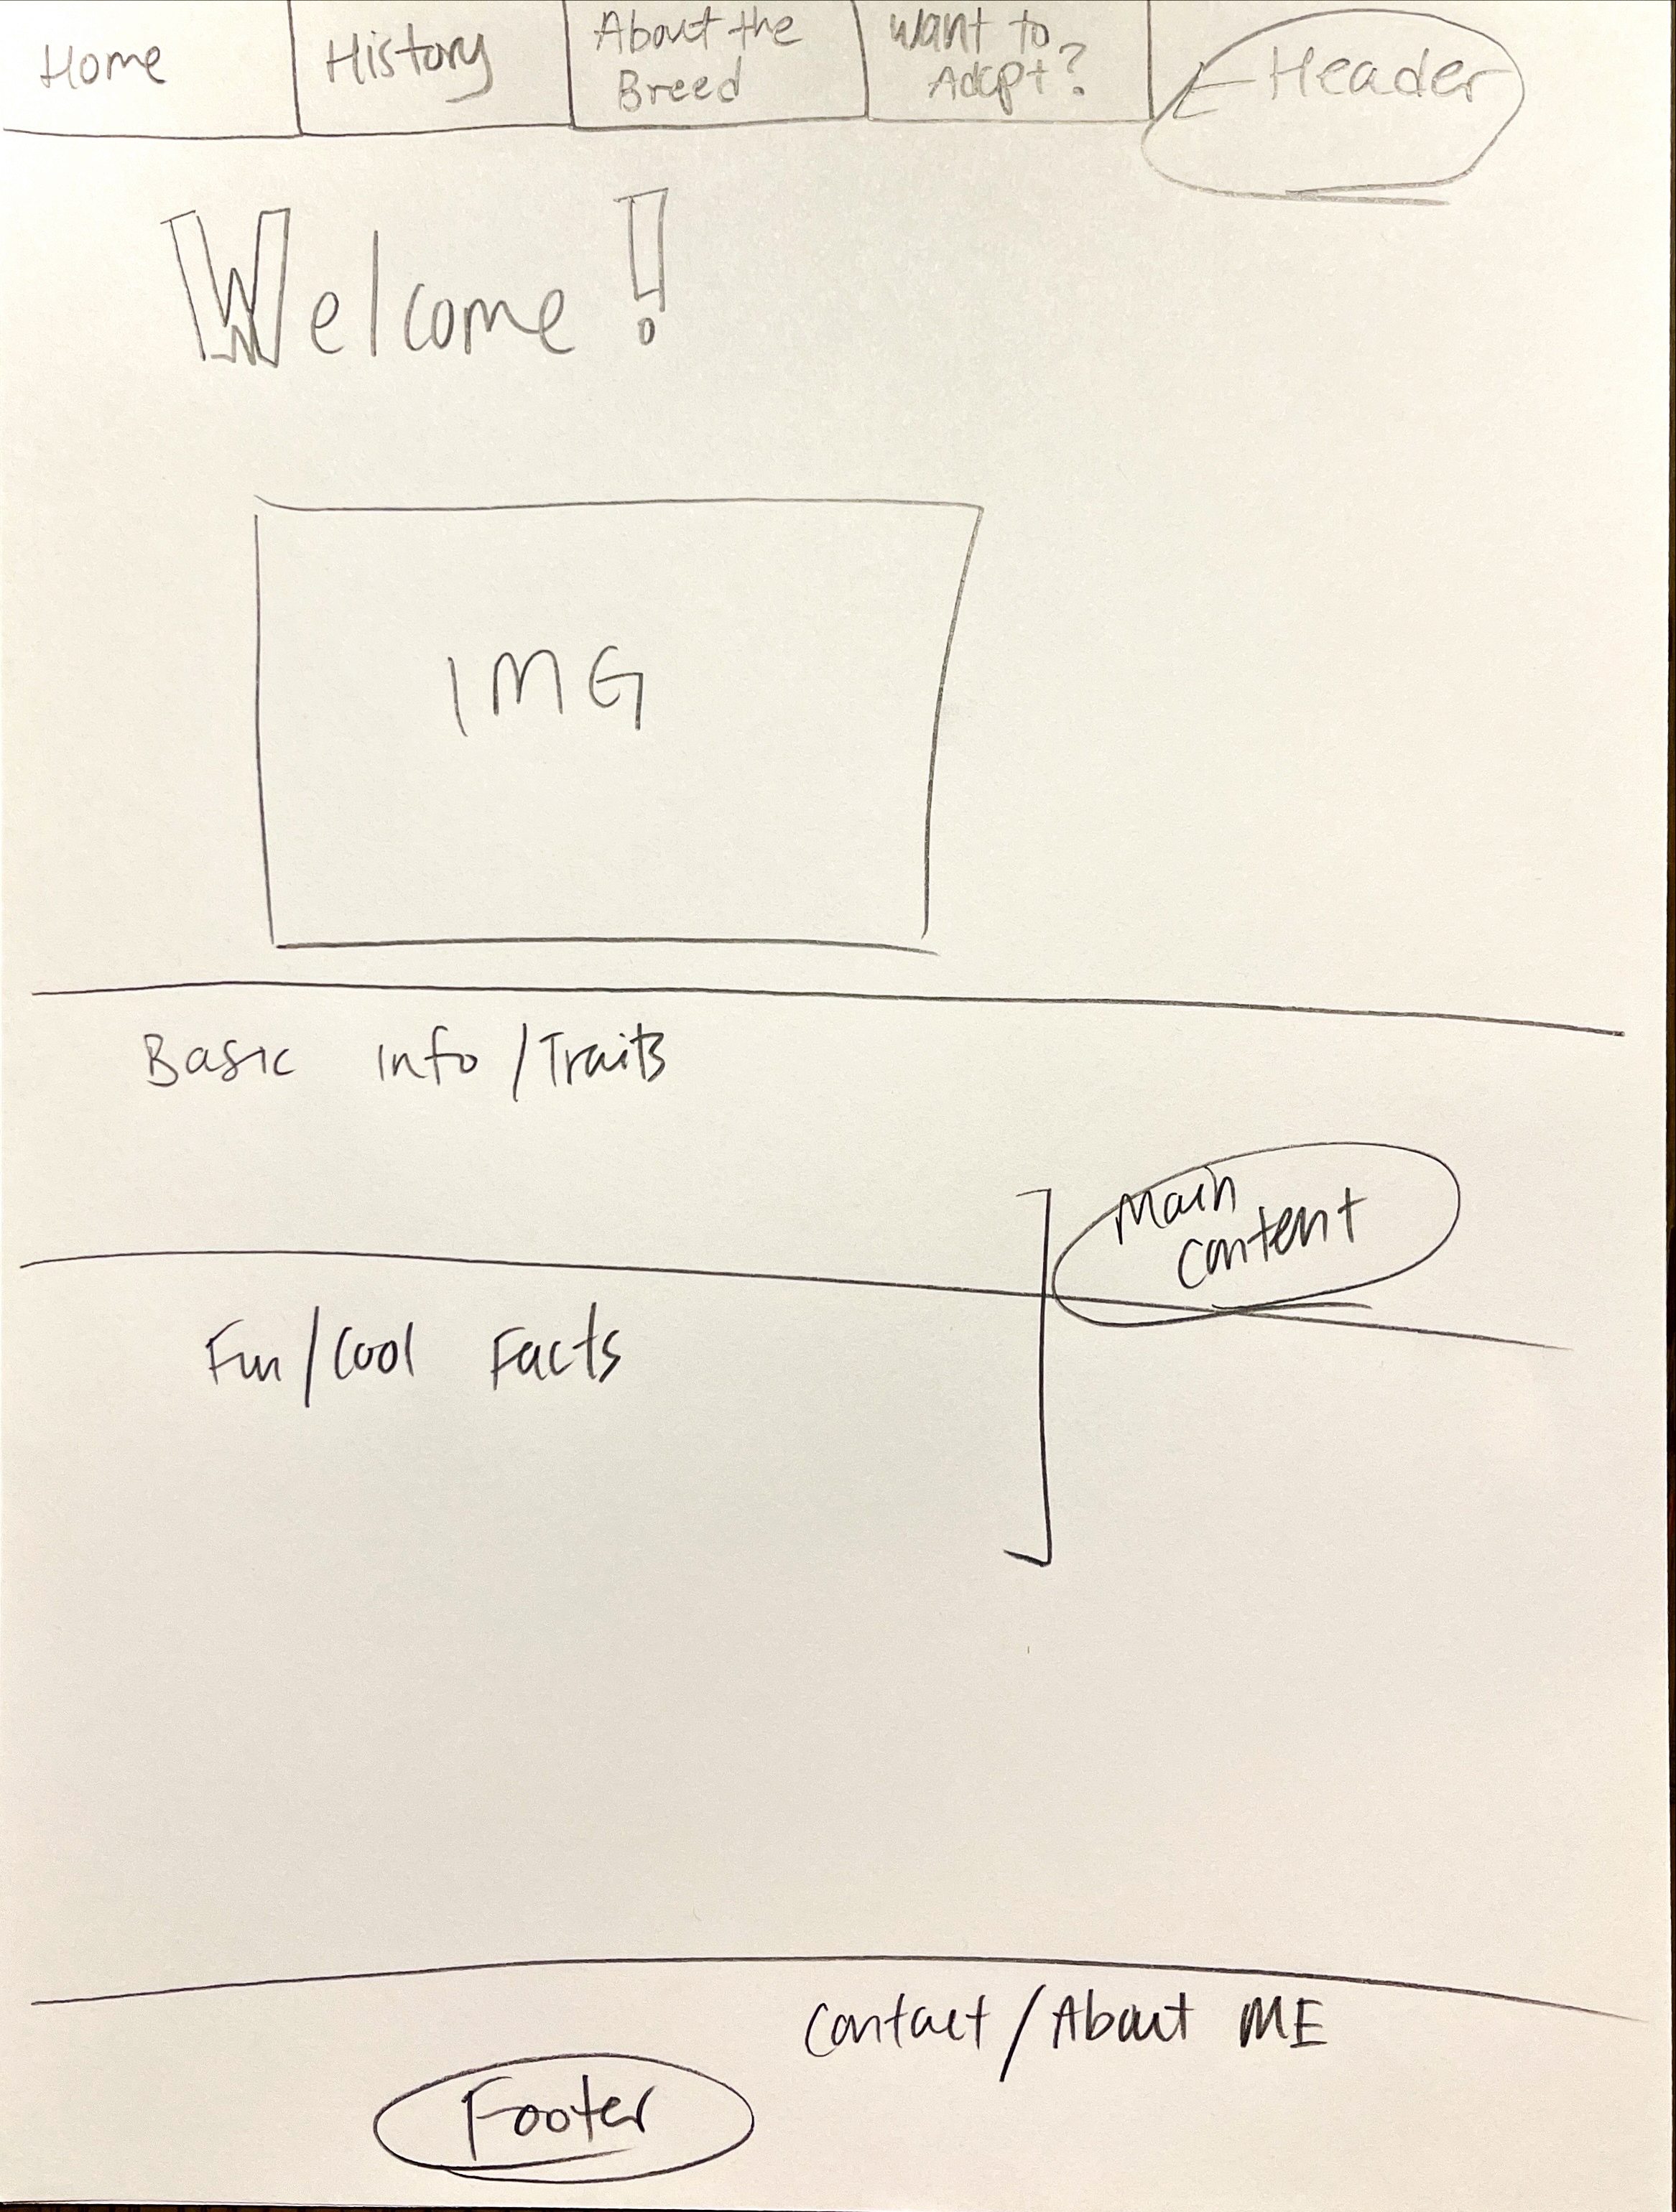 Home
History
About the
Breed
Want to
Adopt?
Header
Welcome!
IMG
Basic Info/Traits
Main
Content
Fun/Cool Facts
Contact/About ME
Footer